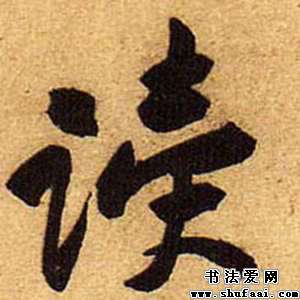 读
书法爱网
www.shufaai.com